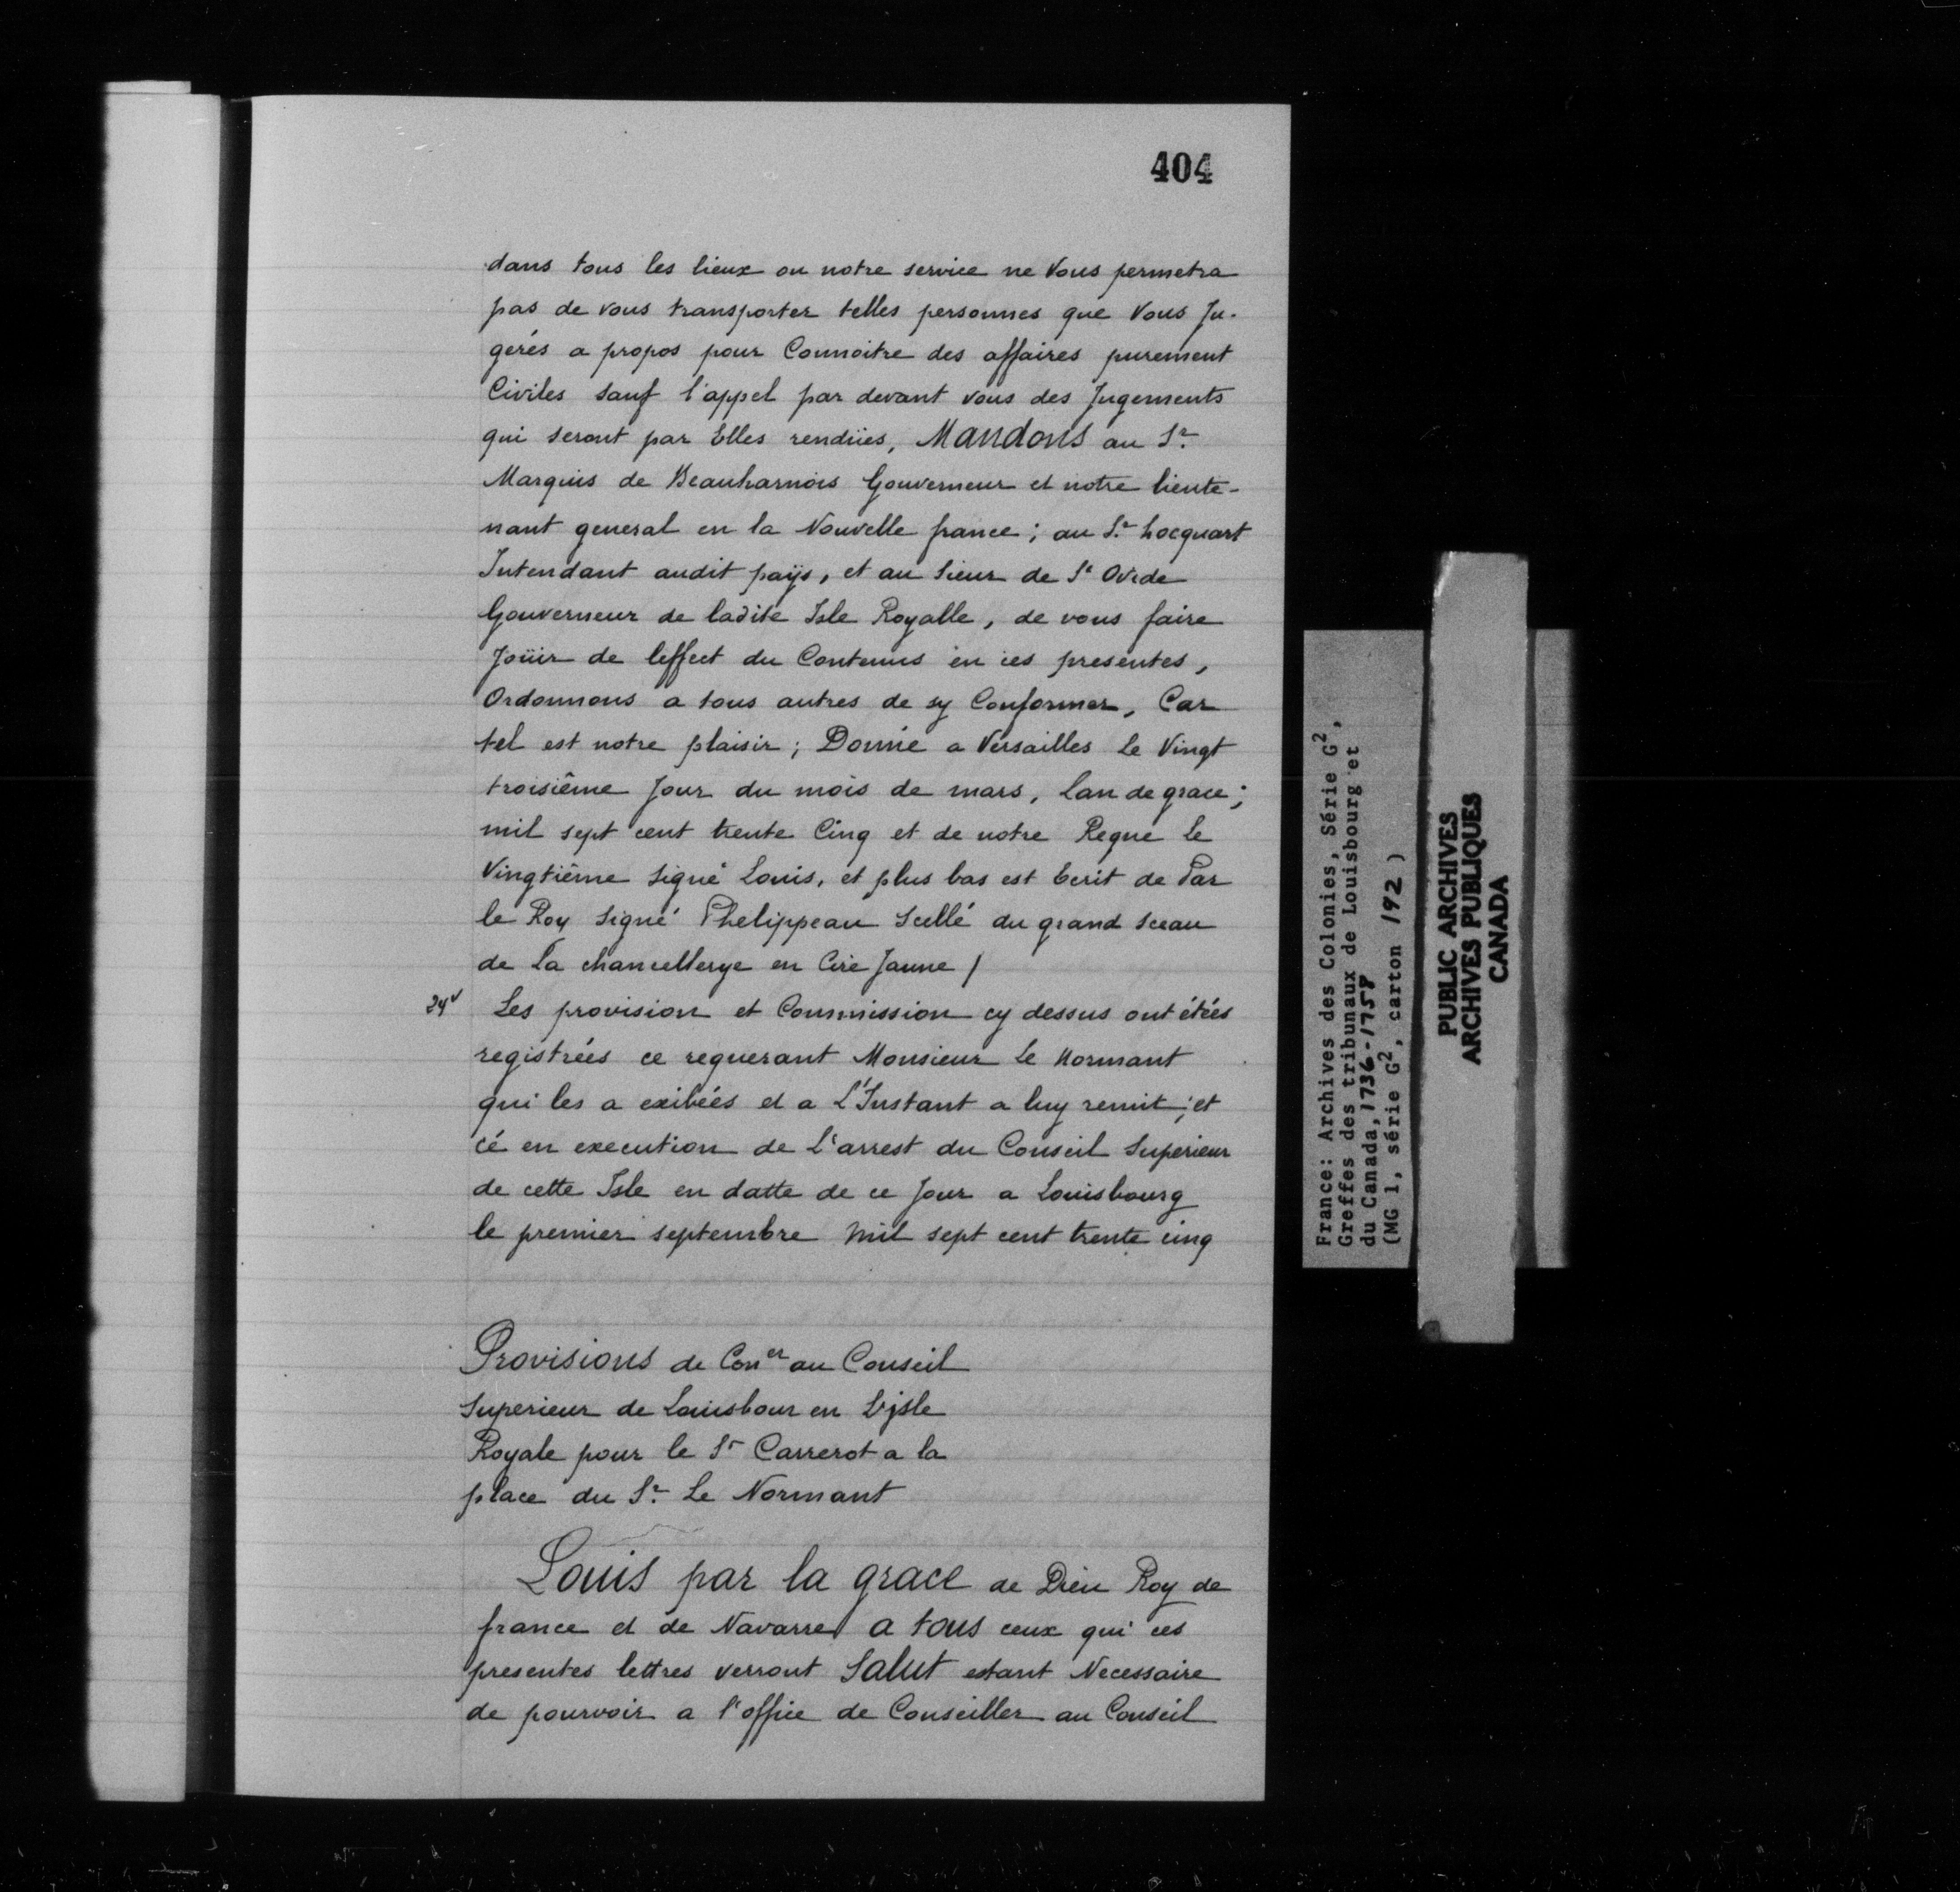 404
dans tous les lieux ou notre service ne Vous permetra
pas de vous transporter telles personnes que Vous Ju-
gerés a propos pour Connoitre des affaires purement
Civiles sauf l'appel par devant vous des Jugements
qui seront par Elles rendües, Mandons au Sr.
Marquis de Beauharnois Gouverneur et notre lieute-
nant general en la Nouvelle france; au Sr. hocquart
Intendant audit païs, et au Sieur de St Ovide
Gouverneur de ladite Isle Royalle, de vous faire
Joüir de leffect du Contenus en ces presentes,
Ordonnons a tous autres de sy Conformer, Car
tel est notre plaisir; Donné a Versailles le Vingt
troisiême Jour du mois de mars, lan de grace;
mil sept cent trente Cinq et de notre Regne le
Vingtiême signé Louis, et plus bas est Ecrit de Par
le Roy signé Phelippeau Scellé du grand sceau
de la chancellerye en Cire Jaune /
24v Les provision et Commission cy dessus ont étées
registrées ce requerant Monsieur le Normant
qui les a exibées et a L'Instant a luy remit; et
cé en execution de L'arrest du Conseil Superieur
de cette Isle en datte de ce Jour a Louisbourg
le premier septembre mil sept cent trente cinq
Provisions de Coner au Conseil
Superieur de Louisbour en L'jsle
Royale pour le Sr Carrerot a la
place du Sr. Le Normant
Louis par la grace de Dieu Roy de
france et de Navarre a tous ceux qui ces
presentes lettres verront Salut estant Necessaire
de pourvoir a l'office de Conseiller au Conseil
France: Archives des Colonies, Série G2,
Greffes des tribunaux de Louisbourg et
du Canada, 1736-1758
(MG 1, série G2, carton 192)
PUBLIC ARCHIVES
ARCHIVES PUBLIQUES
CANADA